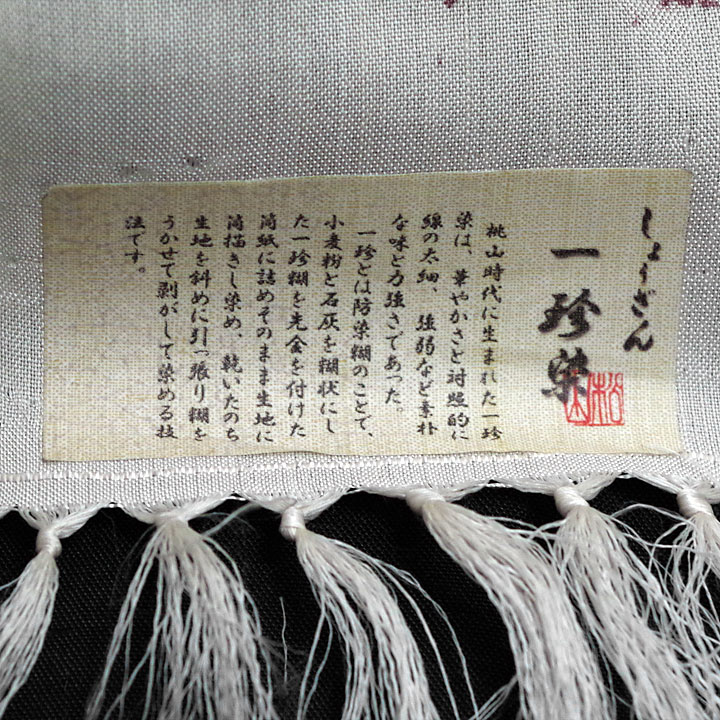 しょうざん
一珍染
松山
桃山時代に生まれた一珍
染は、華やかさと対照的に
線の太細、強弱など素朴
な味と力強さであった。
一珍とは防染糊のことで、
小麦粉と石灰を糊状にし
た一珍糊を先金を付けた
筒紙に詰めそのまま生地に
筒描きし染め、乾いたのち
生地を斜めに引っ張り糊を
うかせて剥がして染める技
法です。